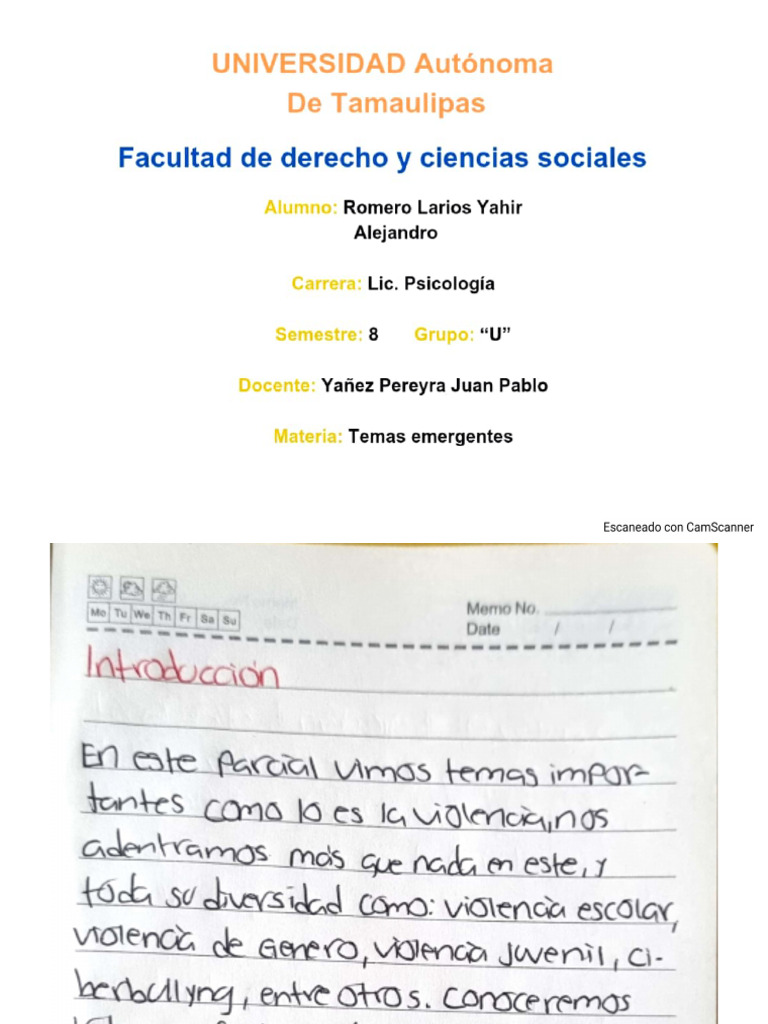 UNIVERSIDAD Autónoma
De Tamaulipas
Facultad de derecho y ciencias sociales
Alumno: Romero Larios Yahir
Alejandro
Carrera: Lic. Psicología
Semestre: 8 Grupo: “U”
Docente: Yañez Pereyra Juan Pablo
Materia: Temas emergentes
Escaneado con CamScanner
Mo Tu We Th Fr Sa Su
Memo No.
Date / /
Introducción
En este parcial vimos temas impor-
tantes como lo es la violencia, nos
adentramos más que nada en este, y
toda su diversidad como: violencia escolar,
violencia de Genero, violencia Juvenil, ci-
berbullyng, entre otros. Conoceremos